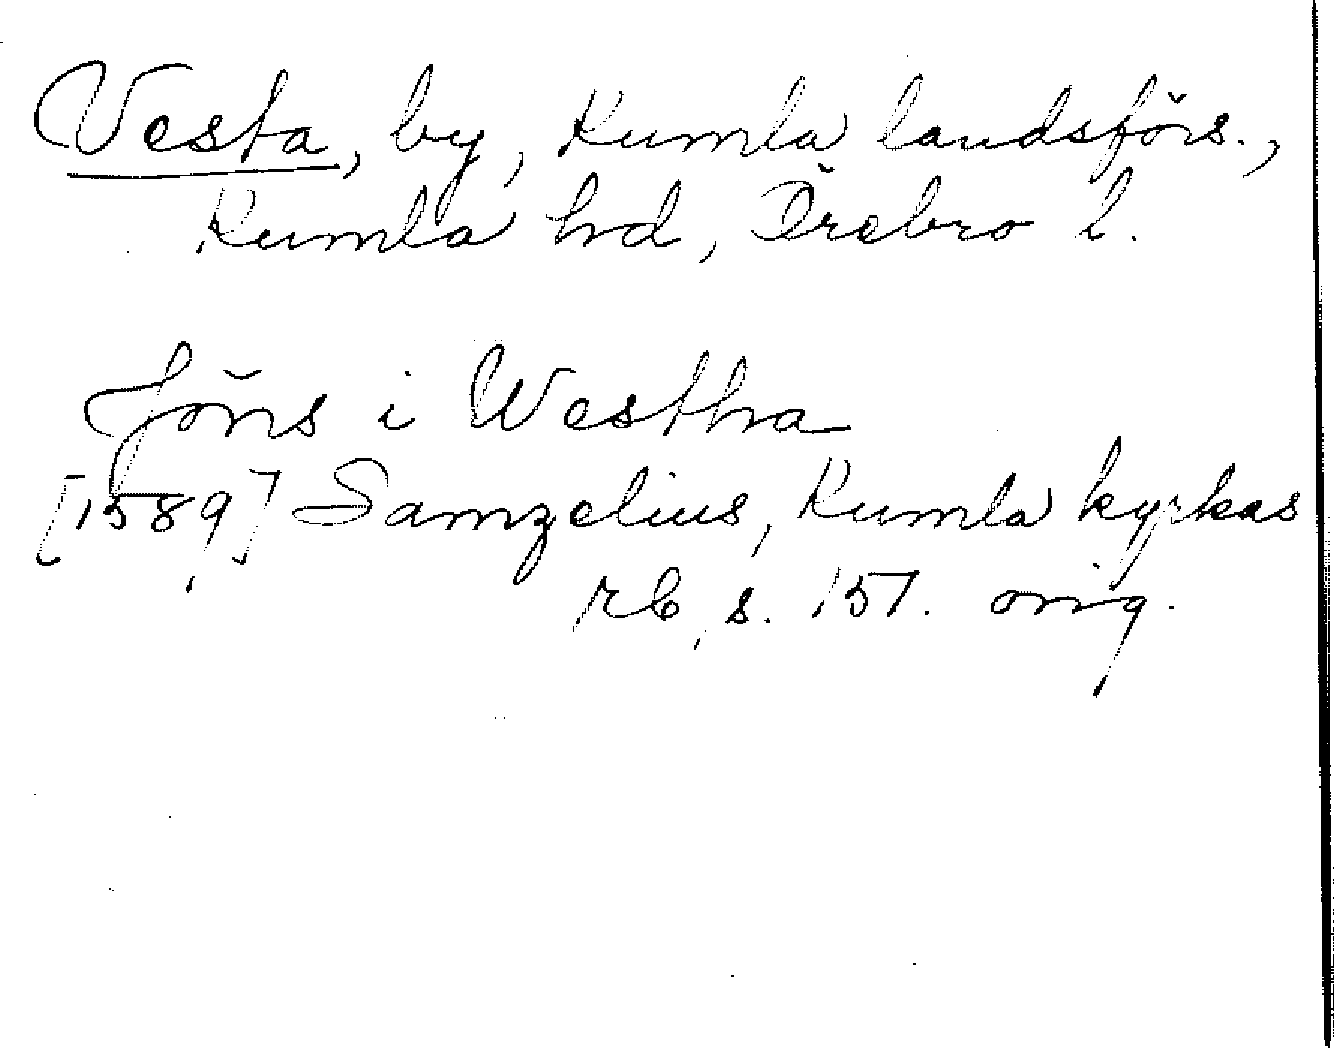 Vesta, by, Kumla landsförs.,
Kumla hd, Örebro l.
Jöns i Westha
[1589] Samzelius, Kumla kyrkas
rb, s. 157. orig.